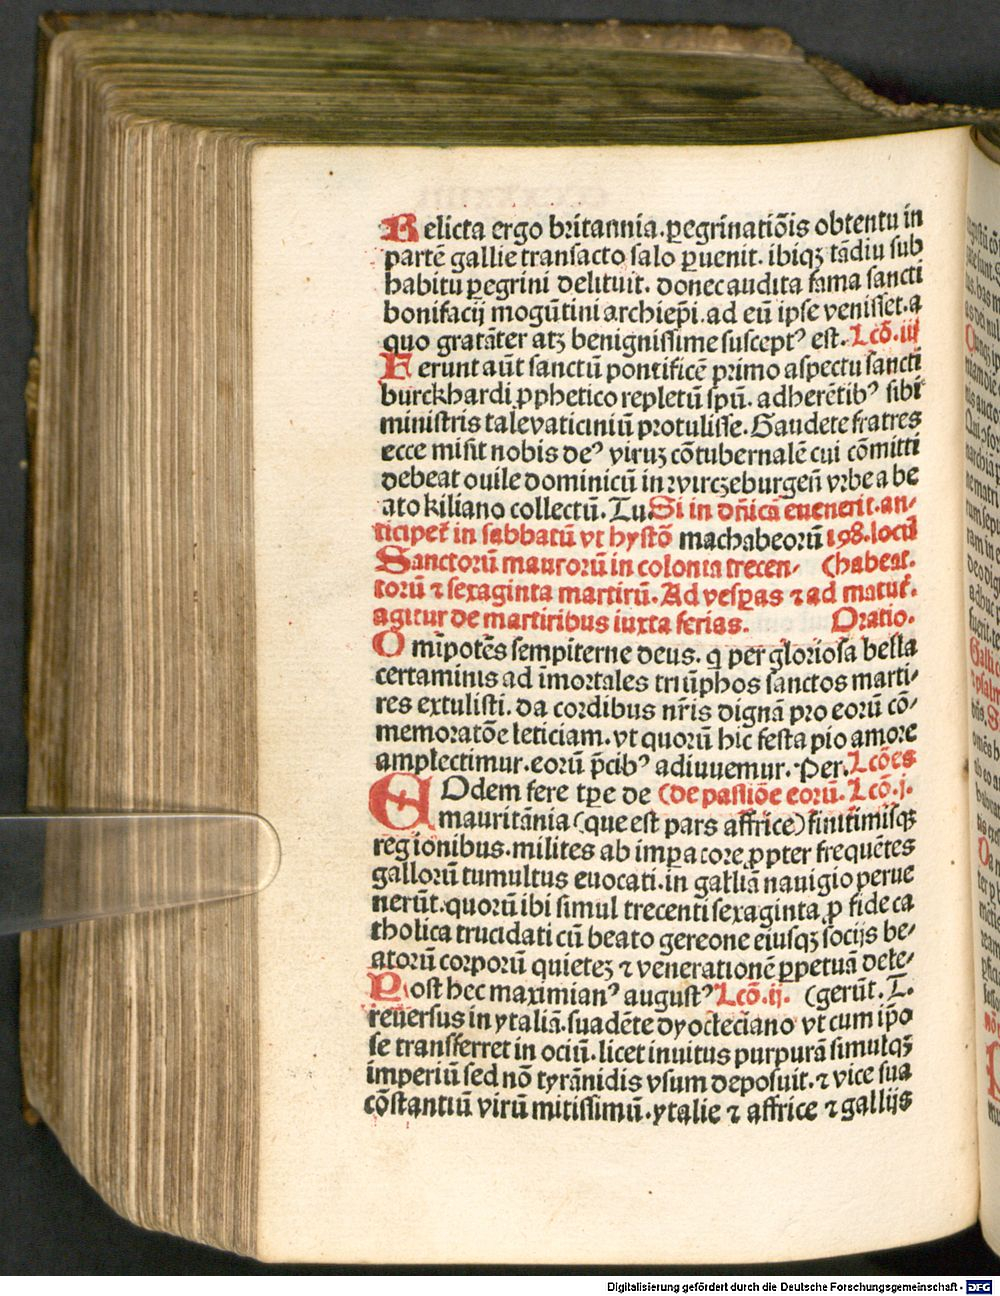 Relicta ergo britannia. ꝑegrinatiōis obtentu in
partē gallie transacto salo ꝑuenit. ibiqꝫ tādiu sub
habitu ꝑegrini delituit. donec audita fama sancti
bonifacij mogūtini archiep̄i. ad eū ipse venisset. a
quo gratāter atqꝫ benignissime susceptꝰ est. Lcō. iij
Ferunt aūt sanctū pontificē primo aspectu sancti
burckhardi ꝓphetico repletū sp̄u. adherētibꝰ sibi
ministris tale vaticiniū protulisse. Gaudete fratres
ecce misit nobis deꝰ viruꝫ cōtubernalē cui cōmitti
debeat ouile dominicū in wirczeburgeñ vrbe a be
ato kiliano collectū. Tu. Si in dn̄icā euenerit. an-
ticipet᷑ in sabbatū vt hystō machabeorū 198. locū
Sanctorū maurorū in colonia trecen- (habeat.
torū ⁊ sexaginta martirū. Ad vesꝑas ⁊ ad matut᷑.
agitur de martiribus iuxta ferias. Oratio.
Om̄ipotēs sempiterne deus. q̄ per gloriosa bella
certaminis ad īmortales triūphos sanctos marti-
res extulisti. da cordibus nr̄is dignā pro eorū cō-
memoratōe leticiam. vt quorū hic festa pio amore
amplectimur. eorū p̄cibꝰ adiuuemur. Per. Lcōes
EOdem fere tp̄e de (de passiōe eorū. Lcō. j.
mauritānia (que est pars affrice) finitimisqꝫ
regionibus. milites ab imperatore ꝓpter frequētes
gallorū tumultus euocati. in galliā nauigio perue
nerūt. quorū ibi simul trecenti sexaginta ꝓ fide ca
tholica trucidati cū beato gereone eiusqꝫ socijs be-
atorū corporū quieteꝫ ⁊ venerationē ꝑpetuā dele-
Post hec maximianꝰ augustꝰ Lcō. ij. (gerūt. T.
reuersus in ytaliā. suadēte dyocleciano vt cum ip̄o
se transferret in ociū. licet inuitus purpurā simulqꝫ
imperiū sed nō tyrānidis vsum deposuit. ⁊ vice sua
cōstantiū virū mitissimū. ytalie ⁊ affrice ⁊ gallijs
Digitalisierung gefördert durch die Deutsche Forschungsgemeinschaft - DFG